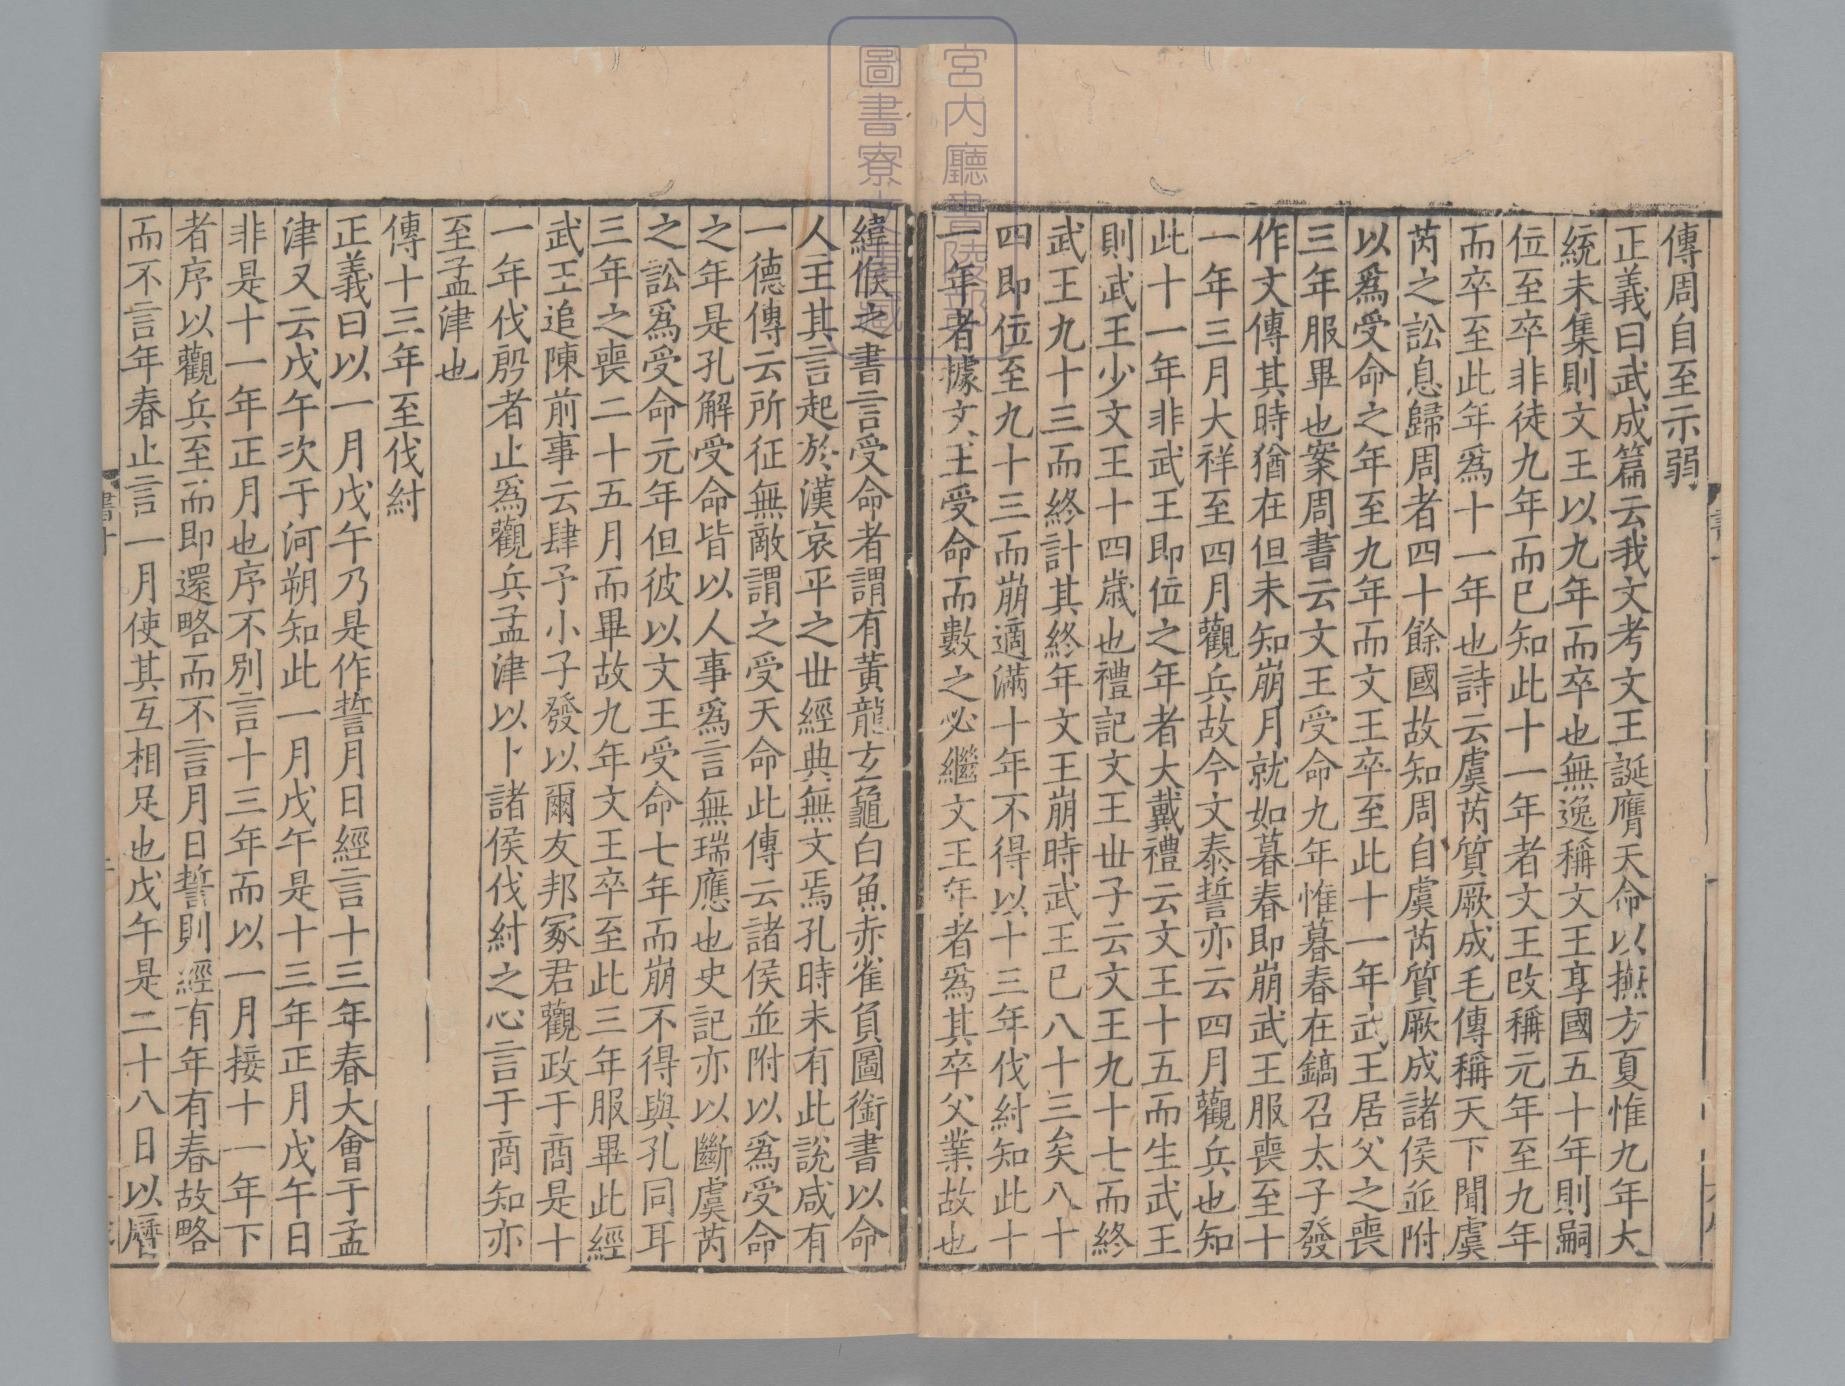 傳周自至示弱
正義曰武成篇云我文考文王誕膺天命以撫方夏惟九年大
統未集則文王以九年而卒也無逸稱文王享國五十年則嗣
位至卒非徒九年而已知此十一年者文王改稱元年至九年
而卒至此年爲十一年也詩云虞芮質厥成毛傳稱天下聞虞
芮之訟息歸周者四十餘國故知周自虞芮質厥成諸侯並附
以爲受命之年至九年而文王卒至此十一年武王居父之喪
三年服畢也案周書云文王受命九年惟暮春在鎬召太子發
作文傳其時猶在但未知崩月就如暮春即崩武王服喪至十
一年三月大祥至四月觀兵故今文泰誓亦云四月觀兵也知
此十一年非武王即位之年者大戴禮云文王十五而生武王
則武王少文王十四歲也禮記文王世子云文王九十七而終
武王九十三而終計其終年文王崩時武王已八十三矣八十
四即位至九十三而崩適滿十年不得以十三年伐紂知此十
一年者據文王受命而數之必繼文王年者爲其卒父業故也
緯候之書言受命者謂有黃龍玄龜白魚赤雀負圖銜書以命
人主其言起於漢哀平之世經典無文焉孔時未有此說咸有
一德傳云所征無敵謂之受天命此傳云諸侯並附以爲受命
之年是孔解受命皆以人事爲言無瑞應也史記亦以斷虞芮
之訟爲受命元年但彼以文王受命七年而崩不得與孔同耳
三年之喪二十五月而畢故九年文王卒至此三年服畢此經
武王追陳前事云肆予小子發以爾友邦冢君觀政于商是十
一年伐殷者止爲觀兵孟津以卜諸侯伐紂之心言于商知亦
至孟津也
傳十三年至伐紂
正義曰以一月戊午乃是作誓月日經言十三年春大會于孟
津又云戊午次于河朔知此一月戊午是十三年正月戊午日
非是十一年正月也序不別言十三年而以一月接十一年下
者序以觀兵至而即還略而不言月日誓則經有年有春故略
而不言年春止言一月使其互相足也戊午是二十八日以曆
宮内廳書陵部
圖書寮